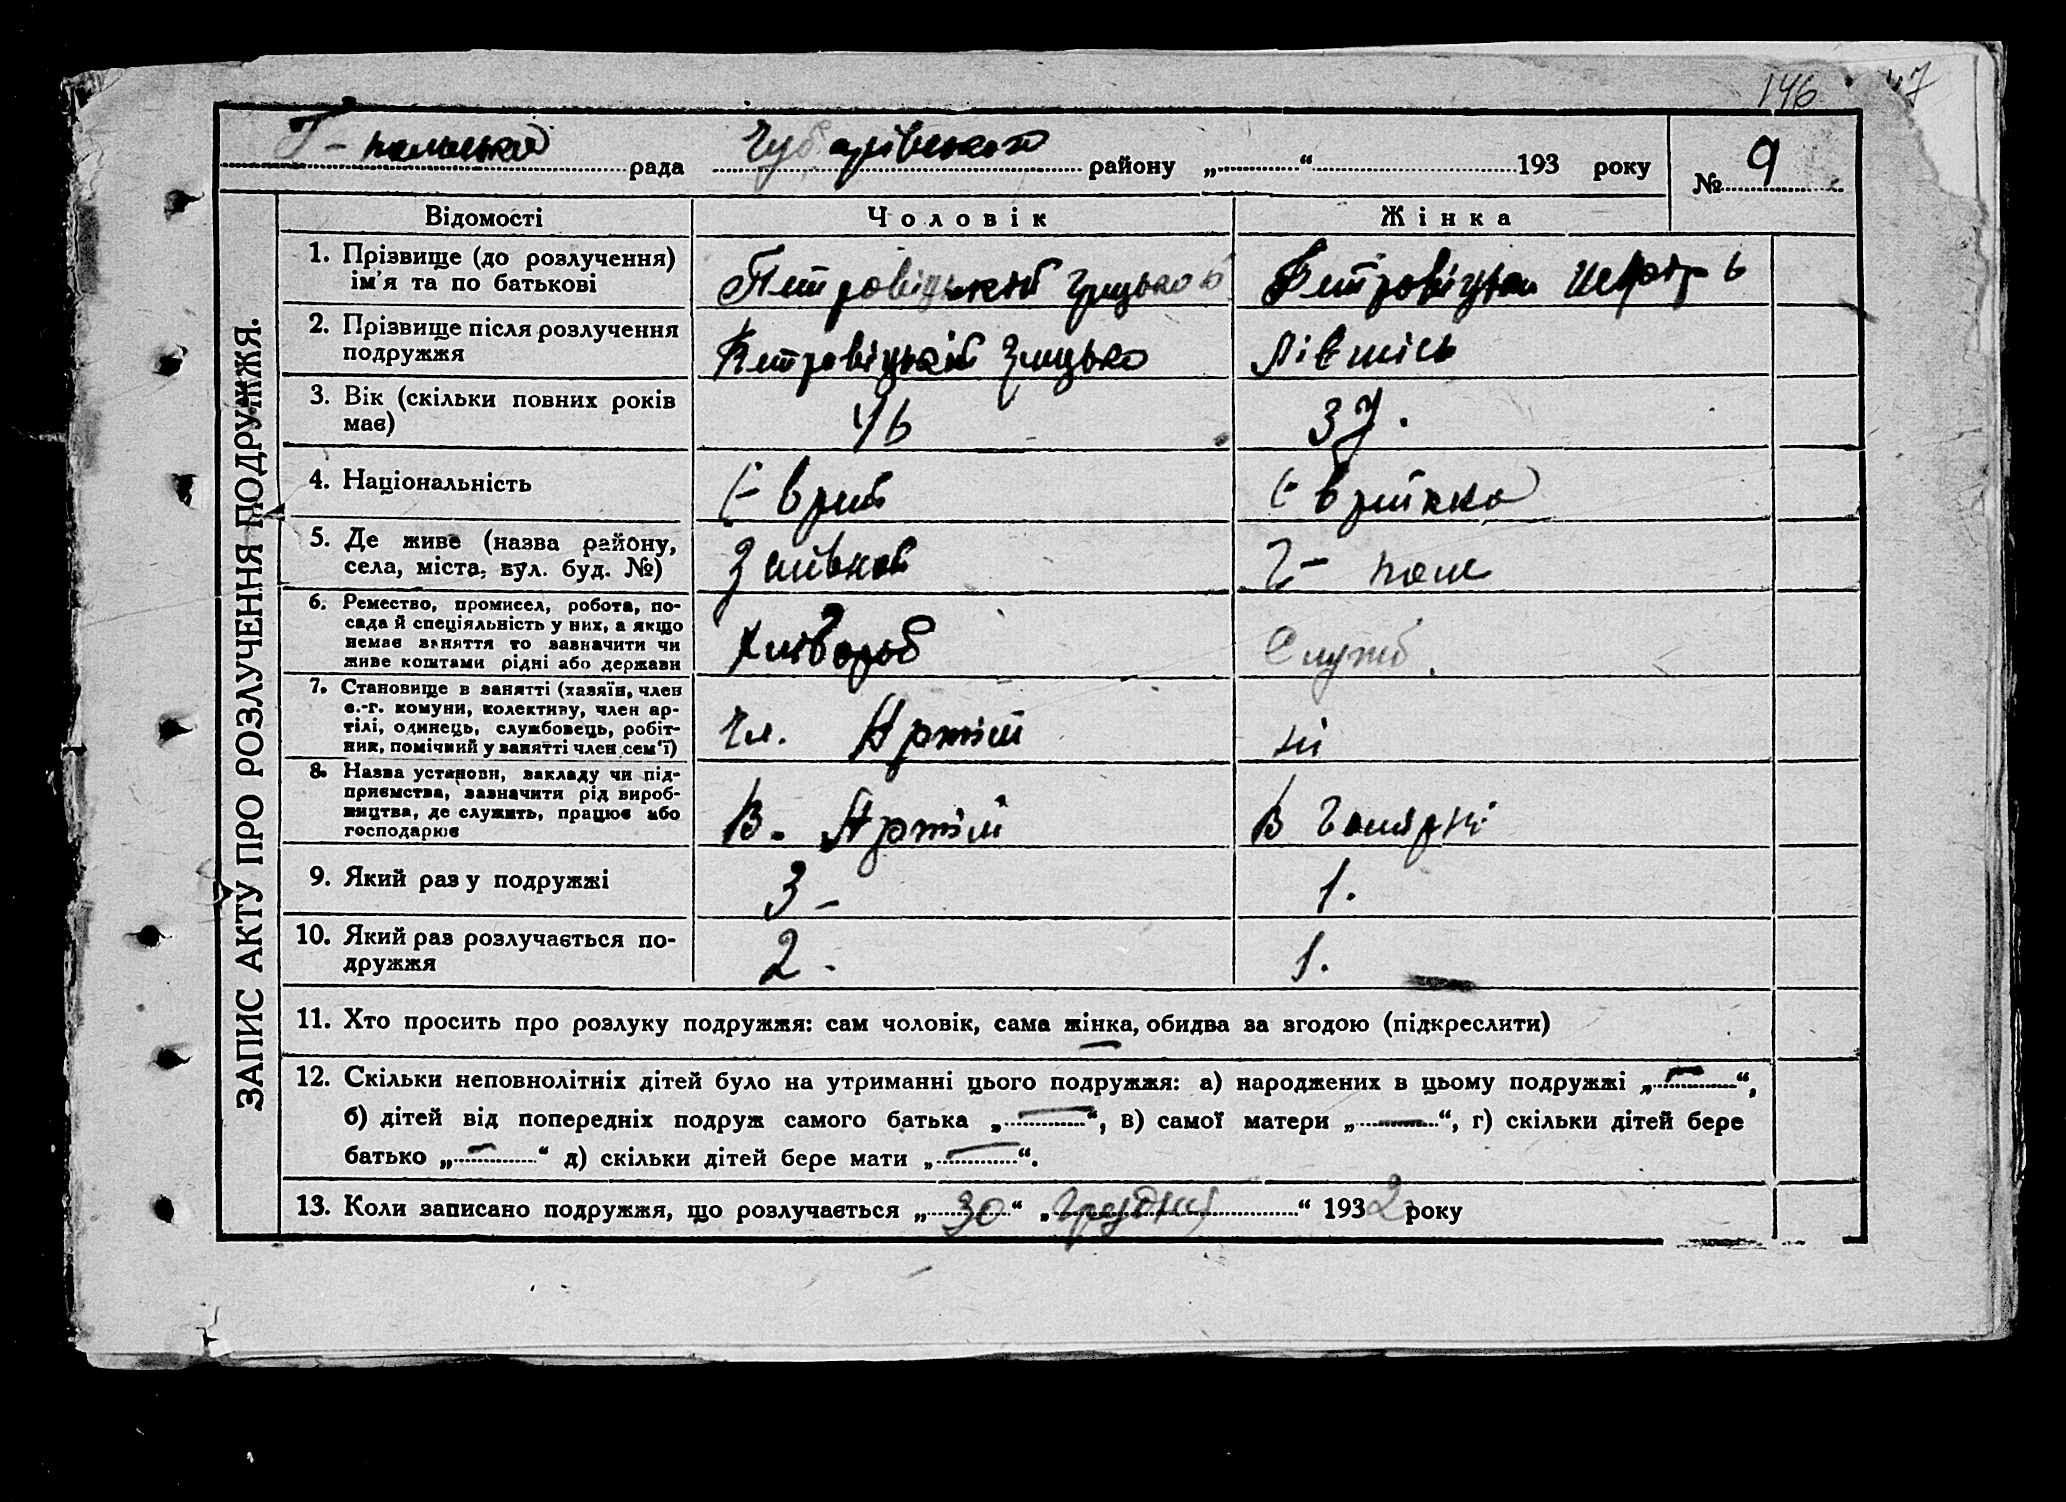 146
Г-пільська рада Чубарівського району „ “ 193 року
№ 9
ЗАПИС АКТУ ПРО РОЗЛУЧЕННЯ ПОДРУЖЖЯ.
Відомості Чоловік Жінка
1. Прізвище (до розлучення) ім'я та по батькові
Петровіцький Грицько
Петровіцька
2. Прізвище після розлучення подружжя
Петровіцький Грицько
3. Вік (скільки повних років має)
46
37.
4. Національність
Єврей
Єврейка
5. Де живе (назва району, села, міста, вул. буд. №)
Г- поле
6. Ремество, промисел, робота, посада й спеціяльність у них, а якщо немає заняття то зазначити чи живе коштами рідні або держави
Хлібороб
Служб.
7. Становище в занятті (хазяїн, член с.-г. комуни, колективу, член артілі, одинець, службовець, робітник, помічний у занятті член сем'ї)
Чл. Артілі
8. Назва установи, закладу чи підприємства, зазначити рід виробництва, де служить, працює або господарює
В. Артілі
В
9. Який раз у подружжі
3 -
1.
10. Який раз розлучається подружжя
2 -
1.
11. Хто просить про розлуку подружжя: сам чоловік, сама жінка, обидва за згодою (підкреслити)
12. Скільки неповнолітніх дітей було на утриманні цього подружжя: а) народжених в цьому подружжі „ — “,
б) дітей від попередніх подруж самого батька „ — “, в) самої матери „ — “, г) скільки дітей бере
батько „ — “ д) скільки дітей бере мати „ — “.
13. Коли записано подружжя, що розлучається „ 30 “ „ Грудня “ 1932 року